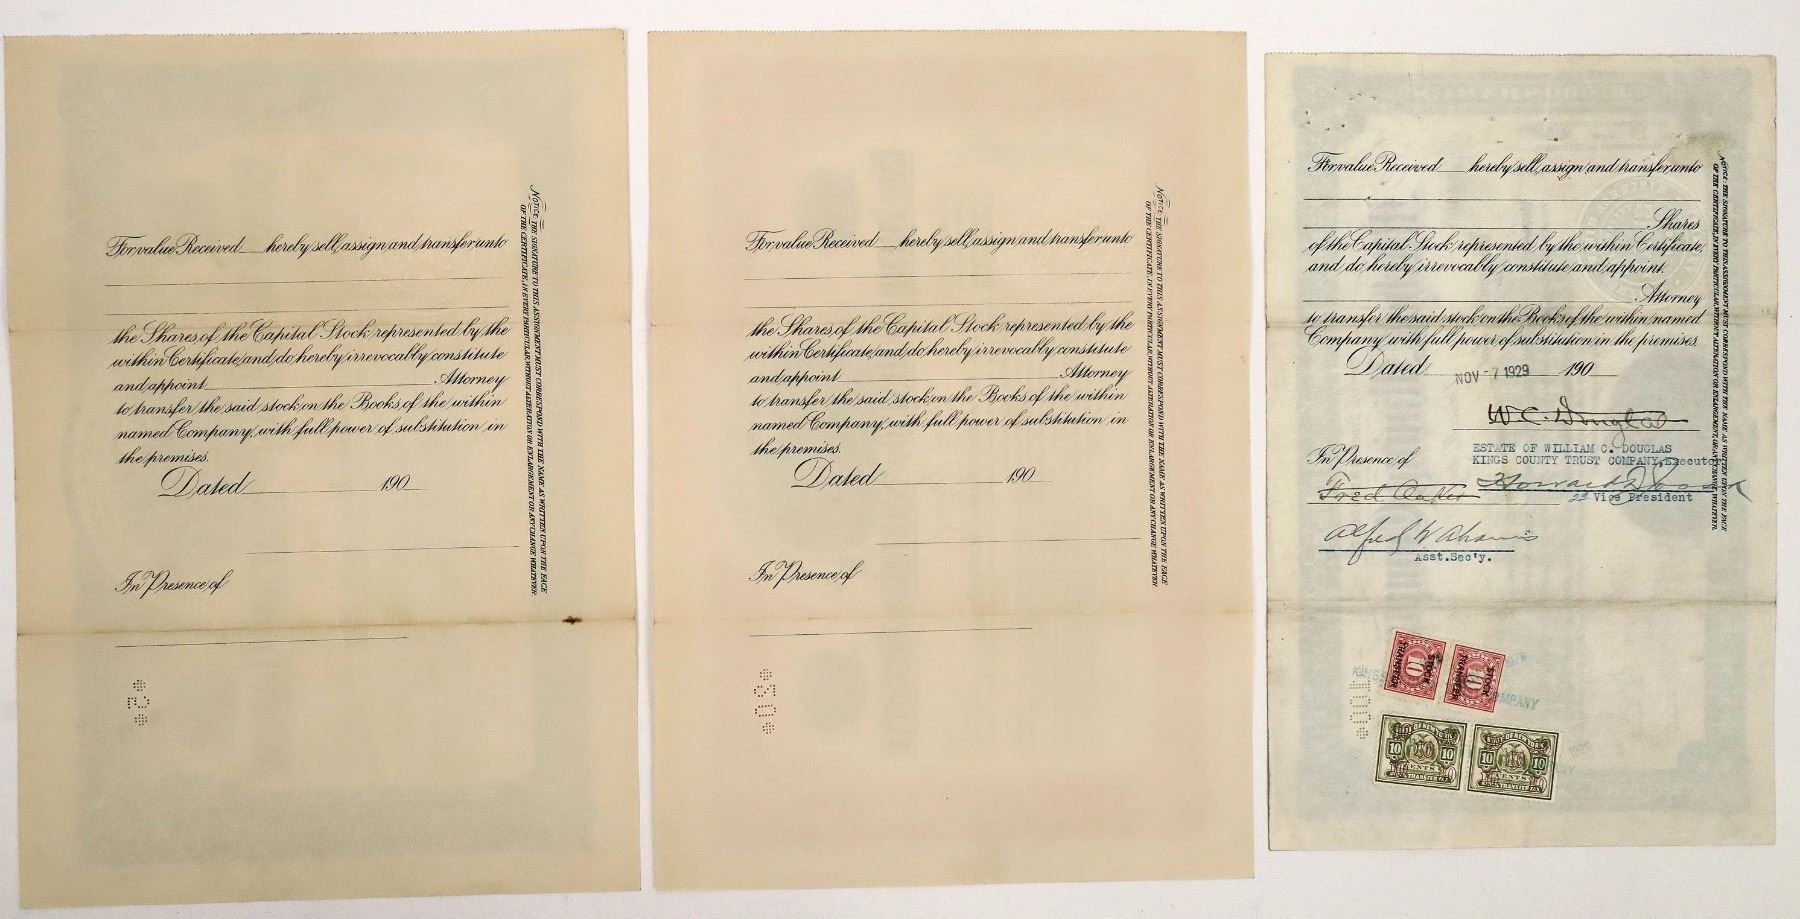 For value Received ___ hereby sell, assign and transfer unto
the Shares of the Capital Stock represented by the
within Certificate, and do hereby irrevocably constitute
and appoint ___ Attorney
to transfer the said stock on the Books of the within
named Company, with full power of substitution in
the premises.
Dated ___ 190
In Presence of
NOTICE: THE SIGNATURE TO THIS ASSIGNMENT MUST CORRESPOND WITH THE NAME AS WRITTEN UPON THE FACE
OF THE CERTIFICATE, IN EVERY PARTICULAR, WITHOUT ALTERATION OR ENLARGEMENT, OR ANY CHANGE WHATEVER.
*5*
For value Received ___ hereby sell, assign and transfer unto
the Shares of the Capital Stock represented by the
within Certificate, and do hereby irrevocably constitute
and appoint ___ Attorney
to transfer the said stock on the Books of the within
named Company, with full power of substitution in
the premises.
Dated ___ 190
In Presence of
NOTICE: THE SIGNATURE TO THIS ASSIGNMENT MUST CORRESPOND WITH THE NAME AS WRITTEN UPON THE FACE
OF THE CERTIFICATE, IN EVERY PARTICULAR, WITHOUT ALTERATION OR ENLARGEMENT, OR ANY CHANGE WHATEVER.
*20*
For value Received ___ hereby sell, assign and transfer unto
Shares
of the Capital Stock represented by the within Certificate,
and do hereby irrevocably constitute and appoint.
Attorney
to transfer the said stock on the Books of the within named
Company with full power of substitution in the premises.
Dated NOV -7 1929 190
W. C. Douglas
ESTATE OF WILLIAM C. DOUGLAS
KINGS COUNTY TRUST COMPANY, Executor
In Presence of
Fred
Howard D.
2d Vice President
Alfred W
Asst.Sec'y.
NOTICE: THE SIGNATURE TO THIS ASSIGNMENT MUST CORRESPOND WITH THE NAME AS WRITTEN UPON THE FACE
OF THE CERTIFICATE, IN EVERY PARTICULAR, WITHOUT ALTERATION OR ENLARGEMENT, OR ANY CHANGE WHATEVER.
*100*
KINGS
COMPANY
STOCK
TRANSFER
10
STOCK
TRANSFER
10
OF NEW YORK
10 10
CENTS
STOCK TRANSFER TAX
STATE OF NEW YORK
10 10
CENTS
STOCK TRANSFER TAX